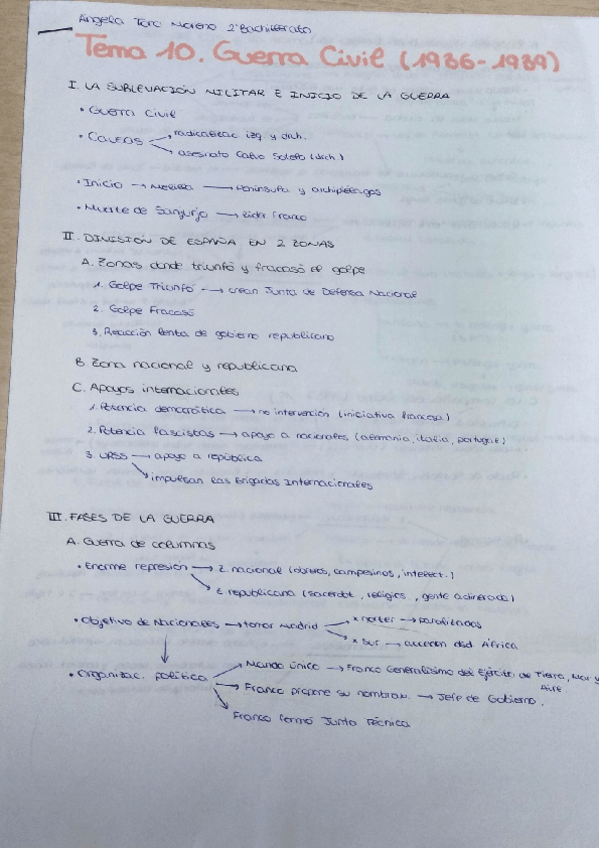 Angela Toro Moreno 2º Bachillerato
Tema 10. Guerra Civil (1936-1939)
I. LA SUBLEVACIÓN MILITAR E INICIO DE LA GUERRA
• Guerra Civil
• Causas → radicalizac izq y drch.
→ asesinato Calvo Sotelo (drch.)
• Inicio → Melilla → Península y archipiélagos
• Muerte de Sanjurjo → líder Franco
II. DIVISIÓN DE ESPAÑA EN 2 ZONAS
A. Zonas donde triunfó y fracasó el golpe
1. Golpe Triunfó → crean Junta de Defensa Nacional
2. Golpe Fracasó
3. Reacción lenta de gobierno republicano
B. Zona nacional y republicana
C. Apoyos internacionales
1. Potencia democrática → no intervención (iniciativa francesa)
2. Potencia fascistas → apoyo a nacionales (alemania, italia, portugal)
3. URSS → apoyo a república
→ impulsan las Brigadas Internacionales
III. FASES DE LA GUERRA
A. Guerra de columnas
• Enorme represión → Z. nacional (obreros, campesinos, intelect.)
→ Z republicana (sacerdot, religios., gente adinerada)
• Objetivo de Nacionales → tomar Madrid → x norte → paralizados
→ x sur → desd África
• Organizac. política → Mando único → Franco Generalísimo del Ejército de Tierra, Mar y
Aire.
→ Franco propone su nombram. → Jefe de Gobierno.
→ Franco formó Junta Técnica